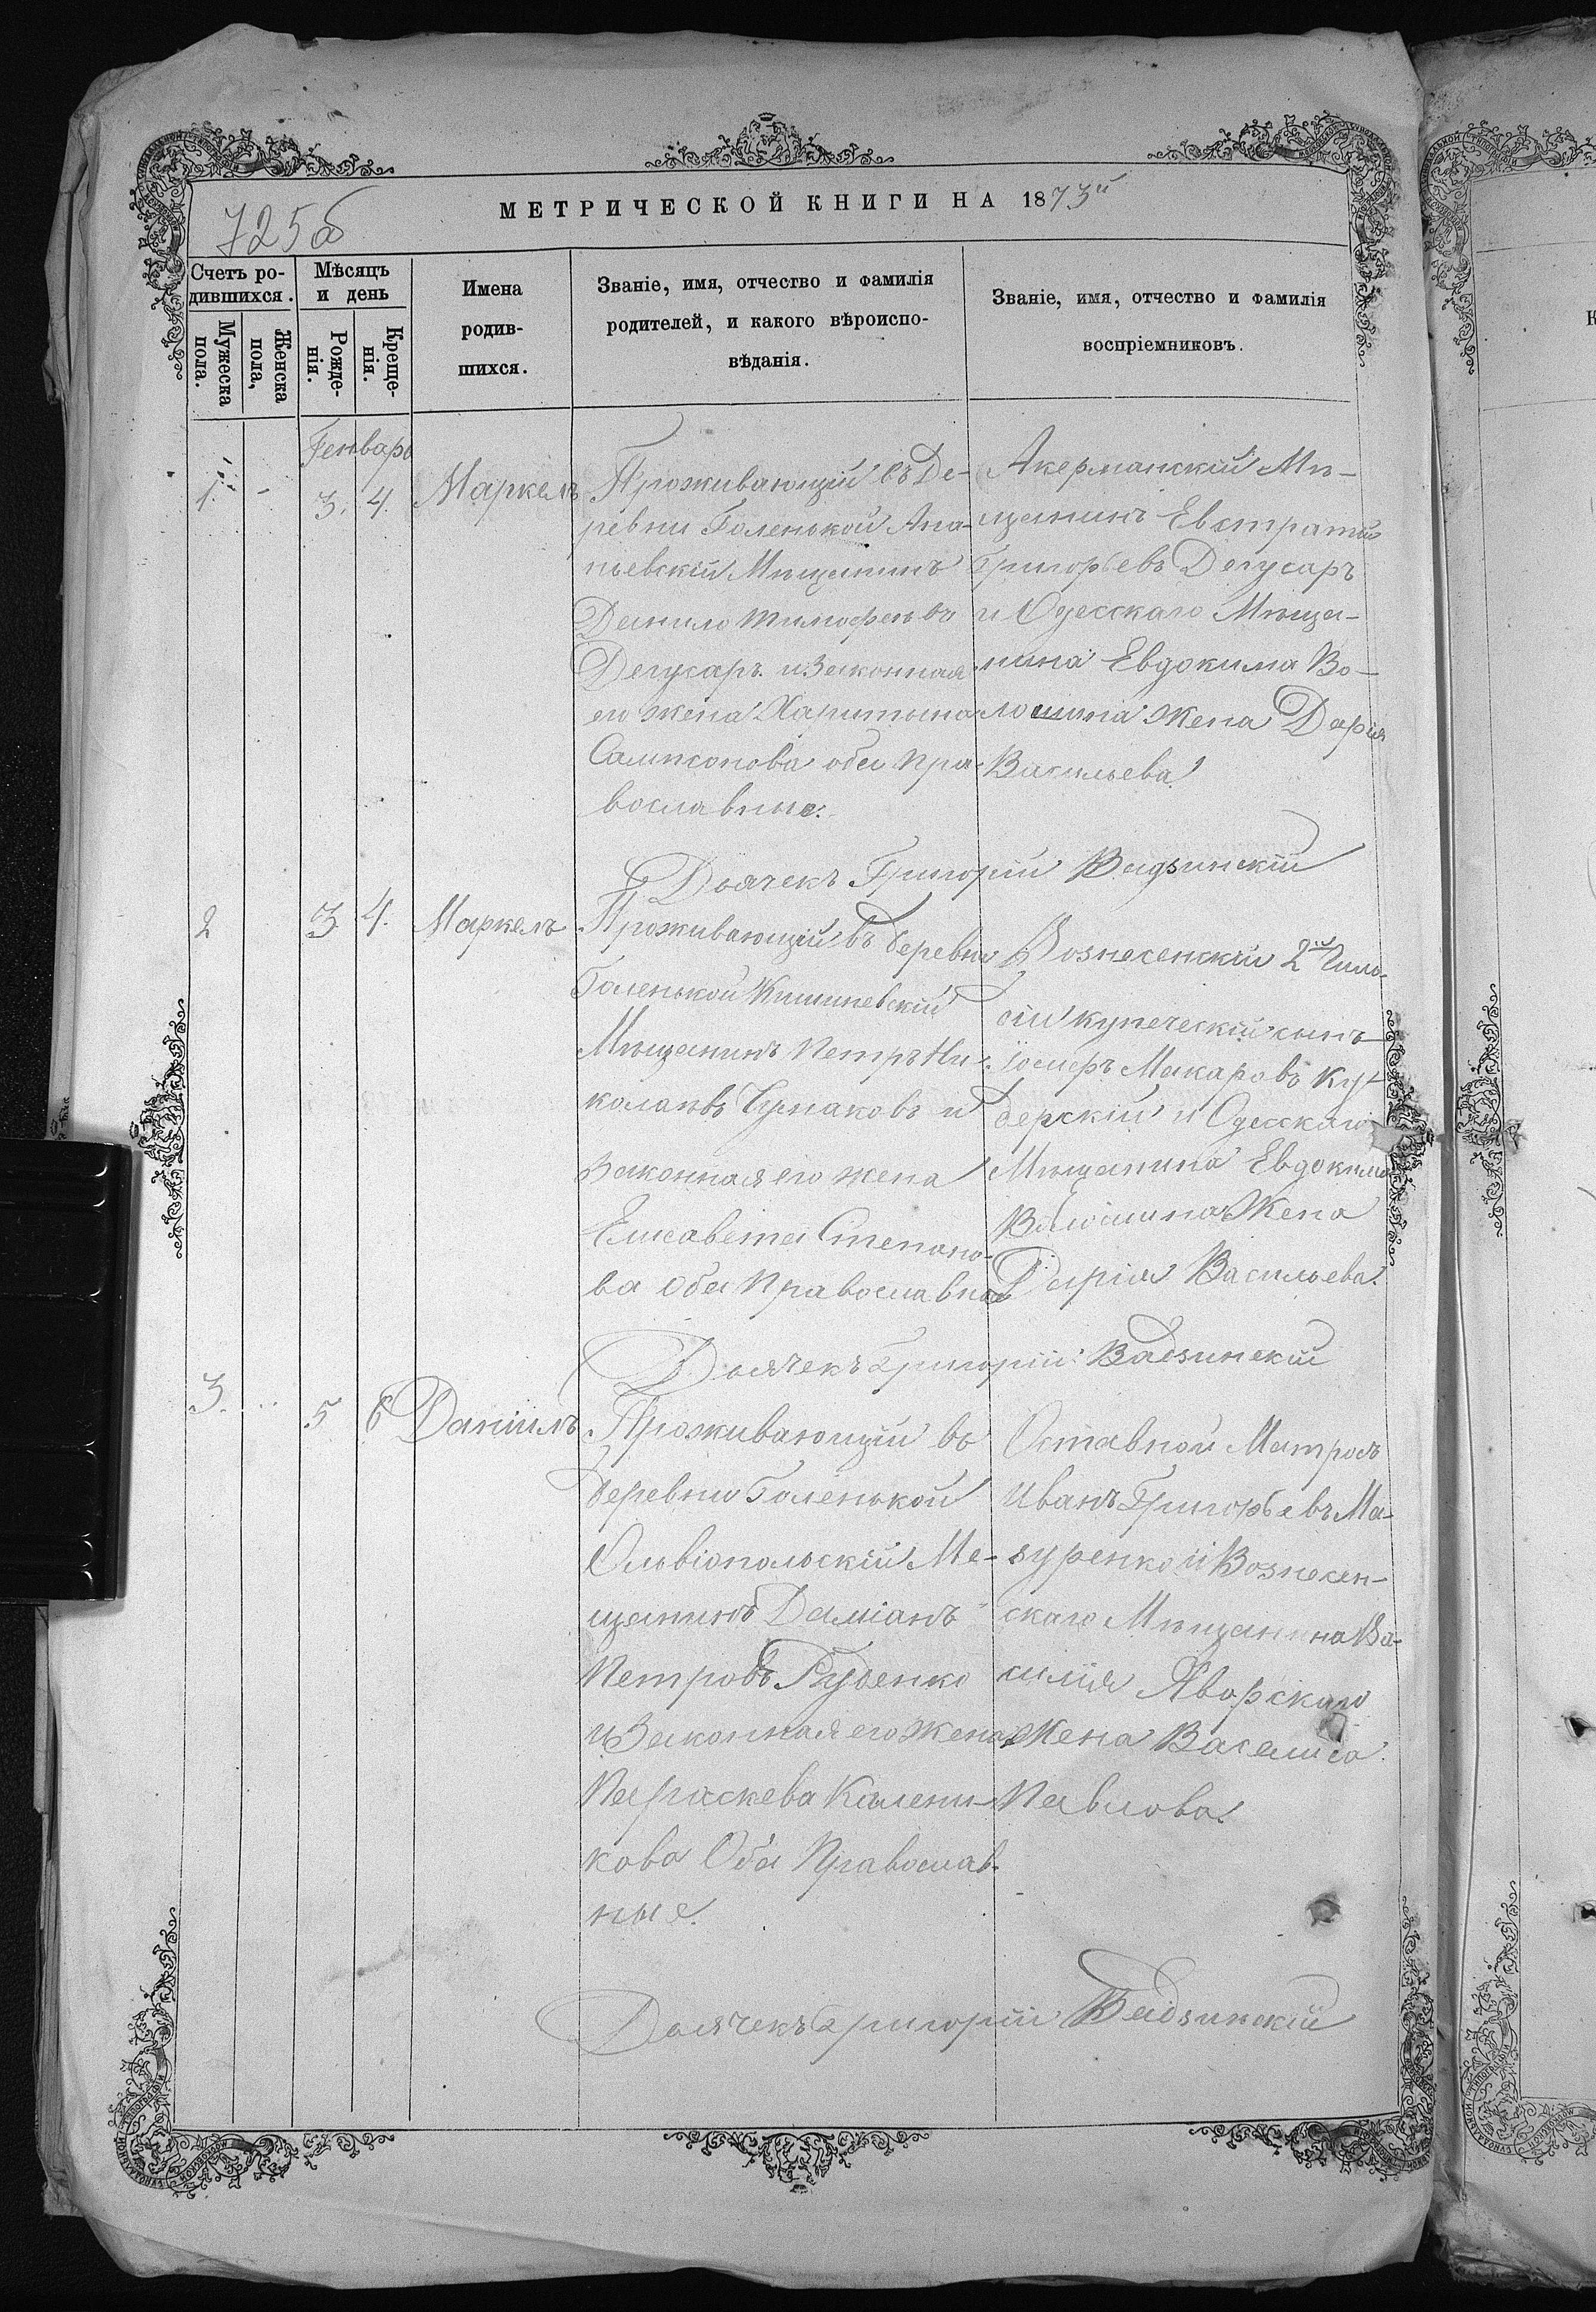 МЕТРИЧЕСКОЙ КНИГИ НА 1873й
725б
Счетъ родившихся.
Мужеска пола.
Женска пола,
Мѣсяцъ и день
Рожденія.
Крещенія.
Имена
родив-
шихся.
Званіе, имя, отчество и фамилія
родителей, и какого вѣроиспо-
вѣданія.
Званіе, имя, отчество и фамилія
воспріемниковъ.
Генварь
1. - 3. 4. Маркелъ
Проживающій въ Де-
ревни Голенькой Ана-
ньевскій Мѣщанинъ
Данило Тимофеевъ
Дегусаръ и Законная
его жена Харитына
Сампсонова оба пра-
вославные.
Акерманскій Мѣ-
щанинъ Евстратій
Григорьевъ Дегусаръ
и Одесскаго Мѣща-
нина Евдокима Во-
лошина жена Дарія
Васильева.
Дьячекъ Григорій Вадзинскій
2 3 4. Маркелъ
Проживающій въ деревни
Голенькой Кишиневскій
Мѣщанинъ Петръ Ни-
колаевъ Чумаковъ и
Законная его жена
Елисавета Степано-
ва Оба Православные
Вознесенскій 2й Гиль-
діи купеческій сынъ
Іосифъ Макаровъ Ку-
дерскій и Одесскаго
Мѣщанина Евдокима
Волошина Жена
Дарія Васильева.
Дьячекъ Григорій Вадзинскій
3. 5 6 Даніилъ
Проживающій въ
деревни Голенькой
Ольвіопольскій Ме-
щанинъ Даміанъ
Петровъ Руденко
и Законная его Жена
Параскева Калени-
кова Оба Православ-
ные.
Отставной Матросъ
Иванъ Григорьевъ Ма-
зуренко и Вознесен-
скаго Мѣщанина Ва-
силія Яворскаго
Жена Васалиса
Павлова.
Дьячекъ Григорій Вадзинскій